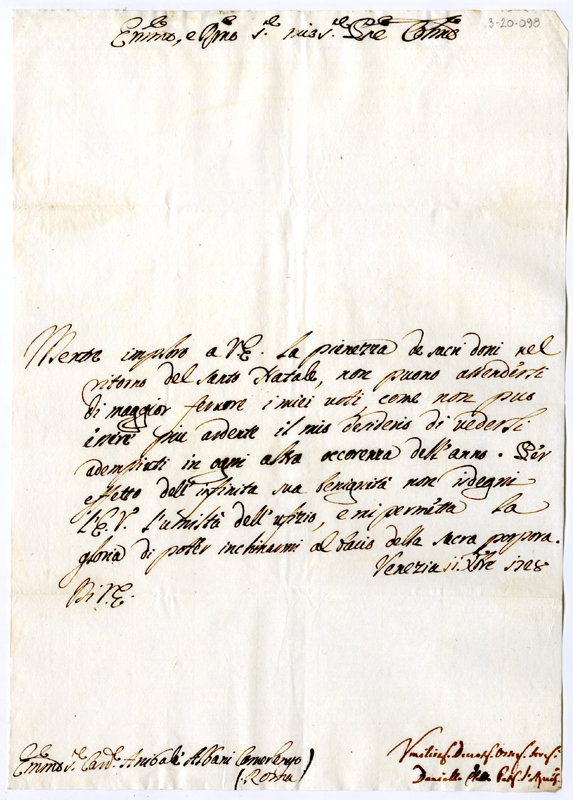 3-20-098
Emmo, e Rmo S.r mio S.r Pre Colmo
Mentre imploro a V.E. la pienezza de sacri doni nel
ritorno del santo Natale, non puono attendersi
di maggior fervore i miei voti come non può
essere più ardente il mio desiderio di vederli
adempiuti in ogni altra occorenza dell'anno. Per
effetto dell'infinita sua benignità non isdegni
l'E.V. l'umiltà dell'ufizio, e mi permetta la
gloria di poter inchinarmi al bacio della sacra porpora.
Venezia 11. Xbre 1728
Di V.E.
Emmo S.r Card. Annibale Albani Camerlengo
(Roma)
Umiliss. Devotiss. Obb. Ser.
Daniello Pat. d'Aquil.